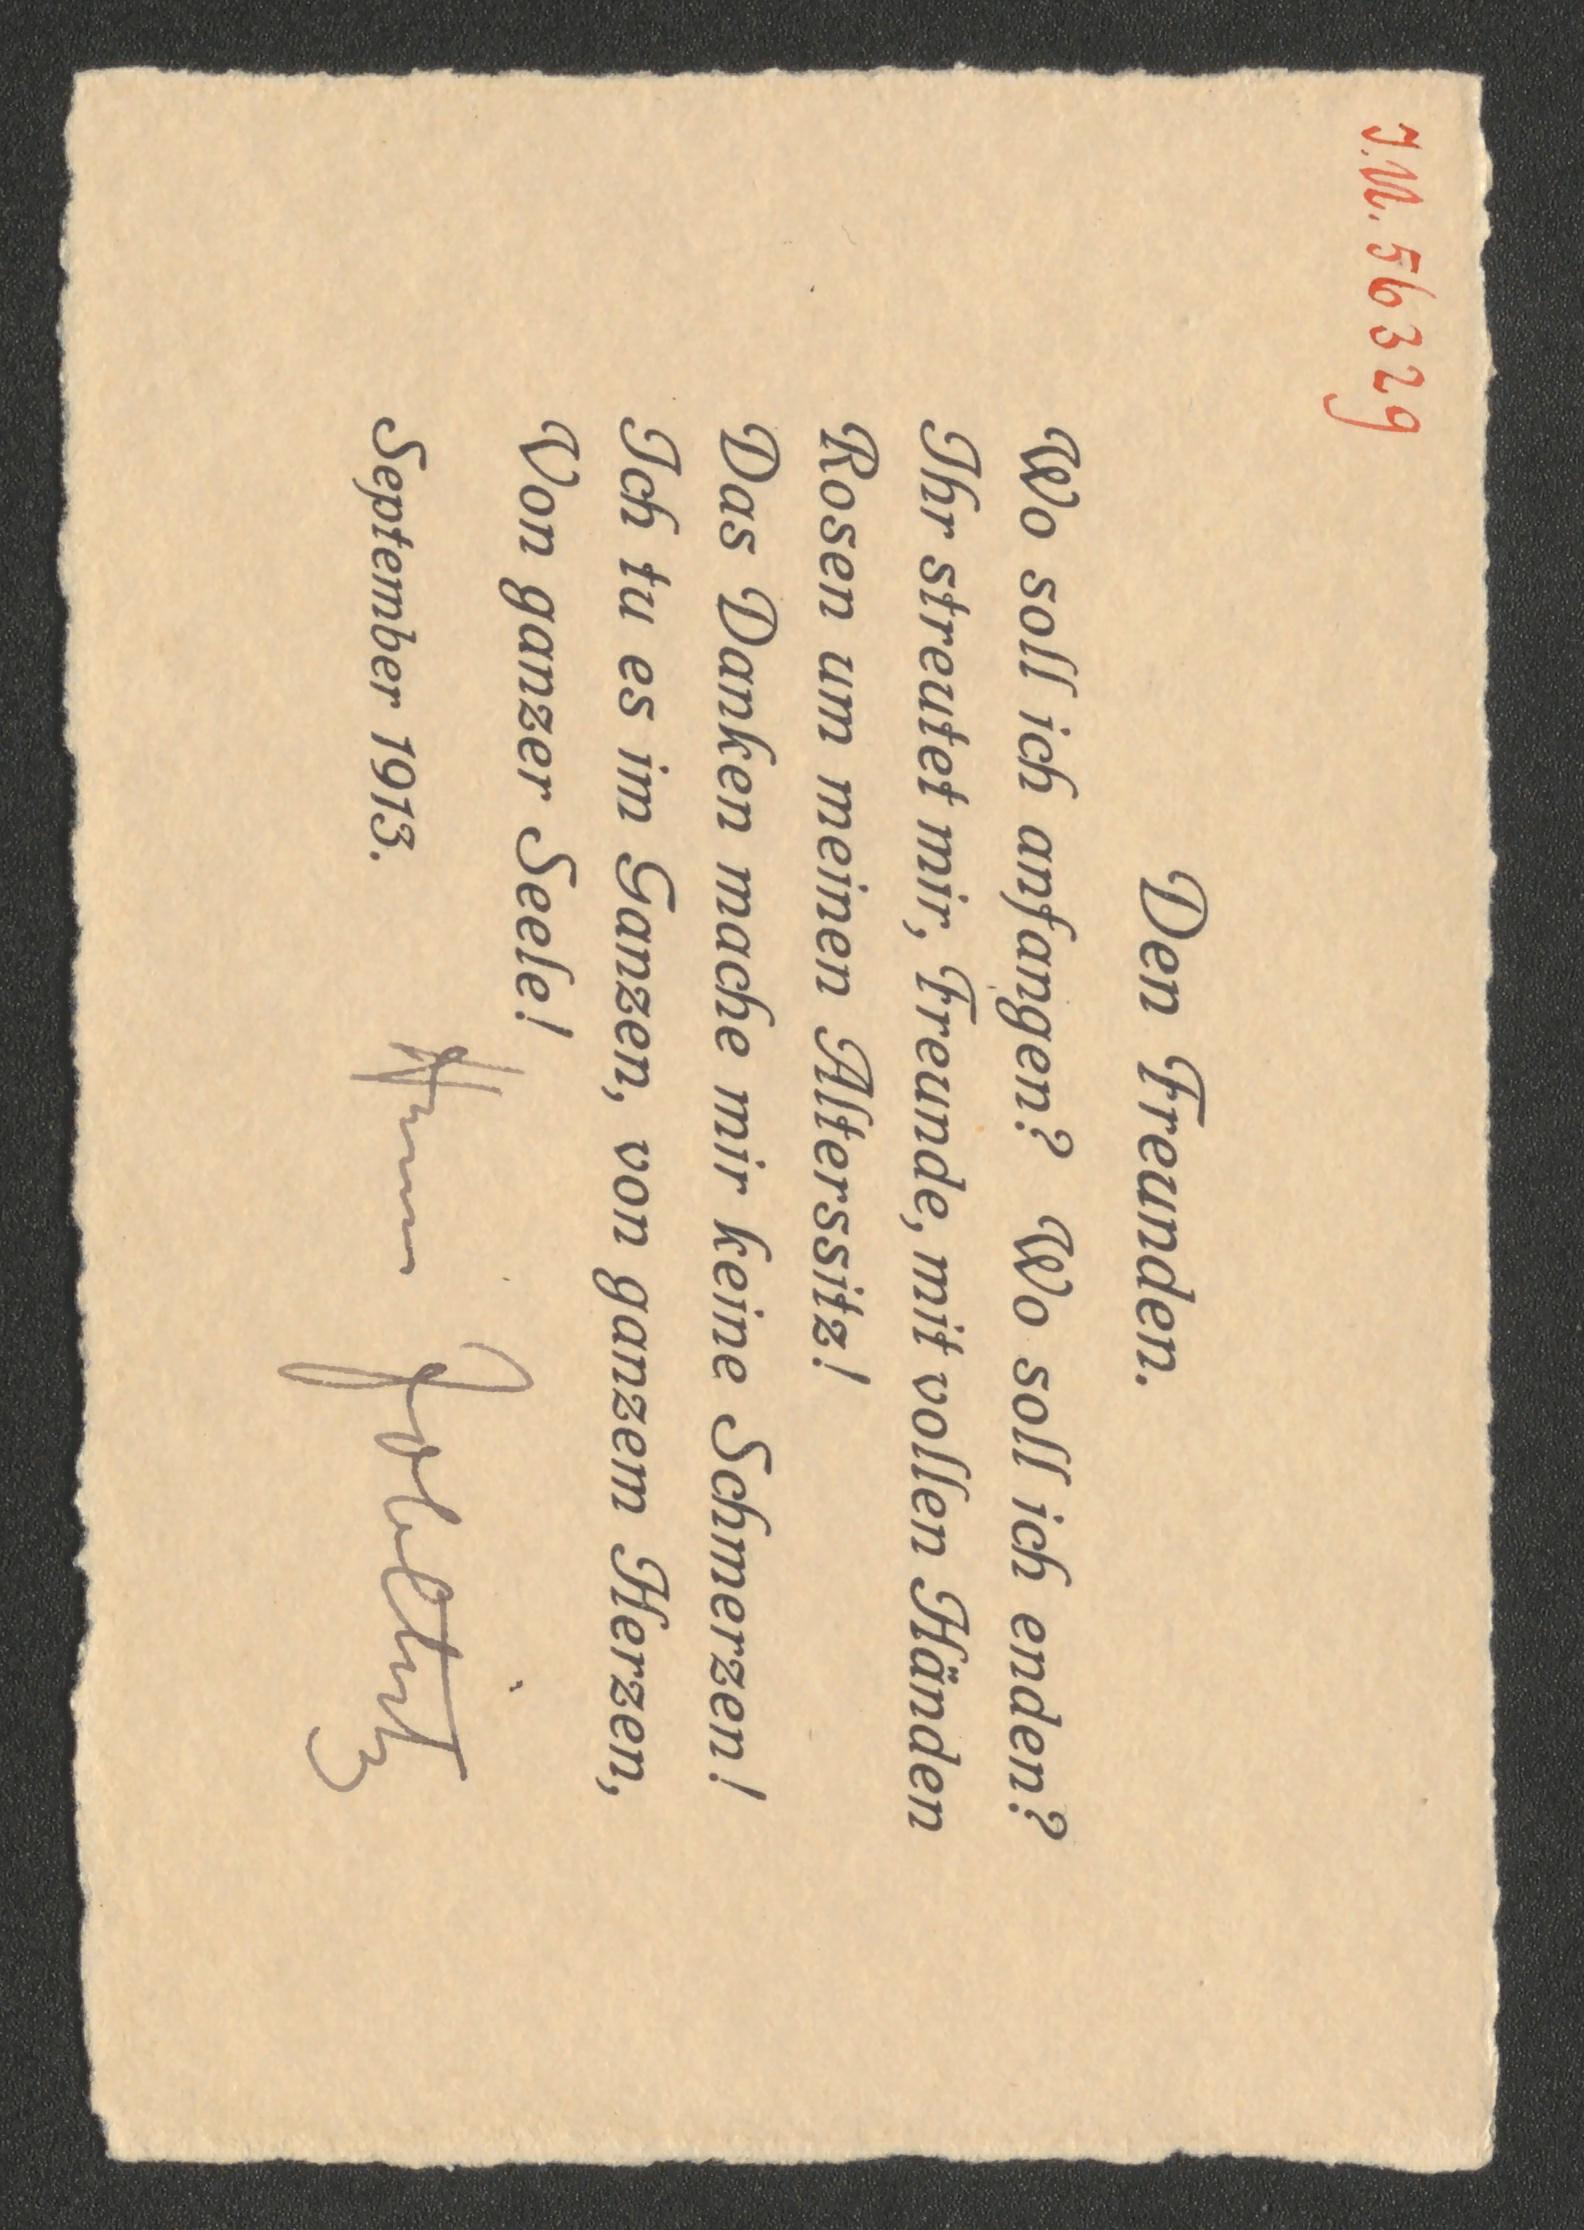 J.N. 56329
Den Freunden.
Wo soll ich anfangen? Wo soll ich enden?
Ihr streutet mir, Freunde, mit vollen Händen
Rosen um meinen Alterssitz!
Das Danken mache mir keine Schmerzen!
Ich tu es im Ganzen, von ganzem Herzen,
Von ganzer Seele!
September 1913.